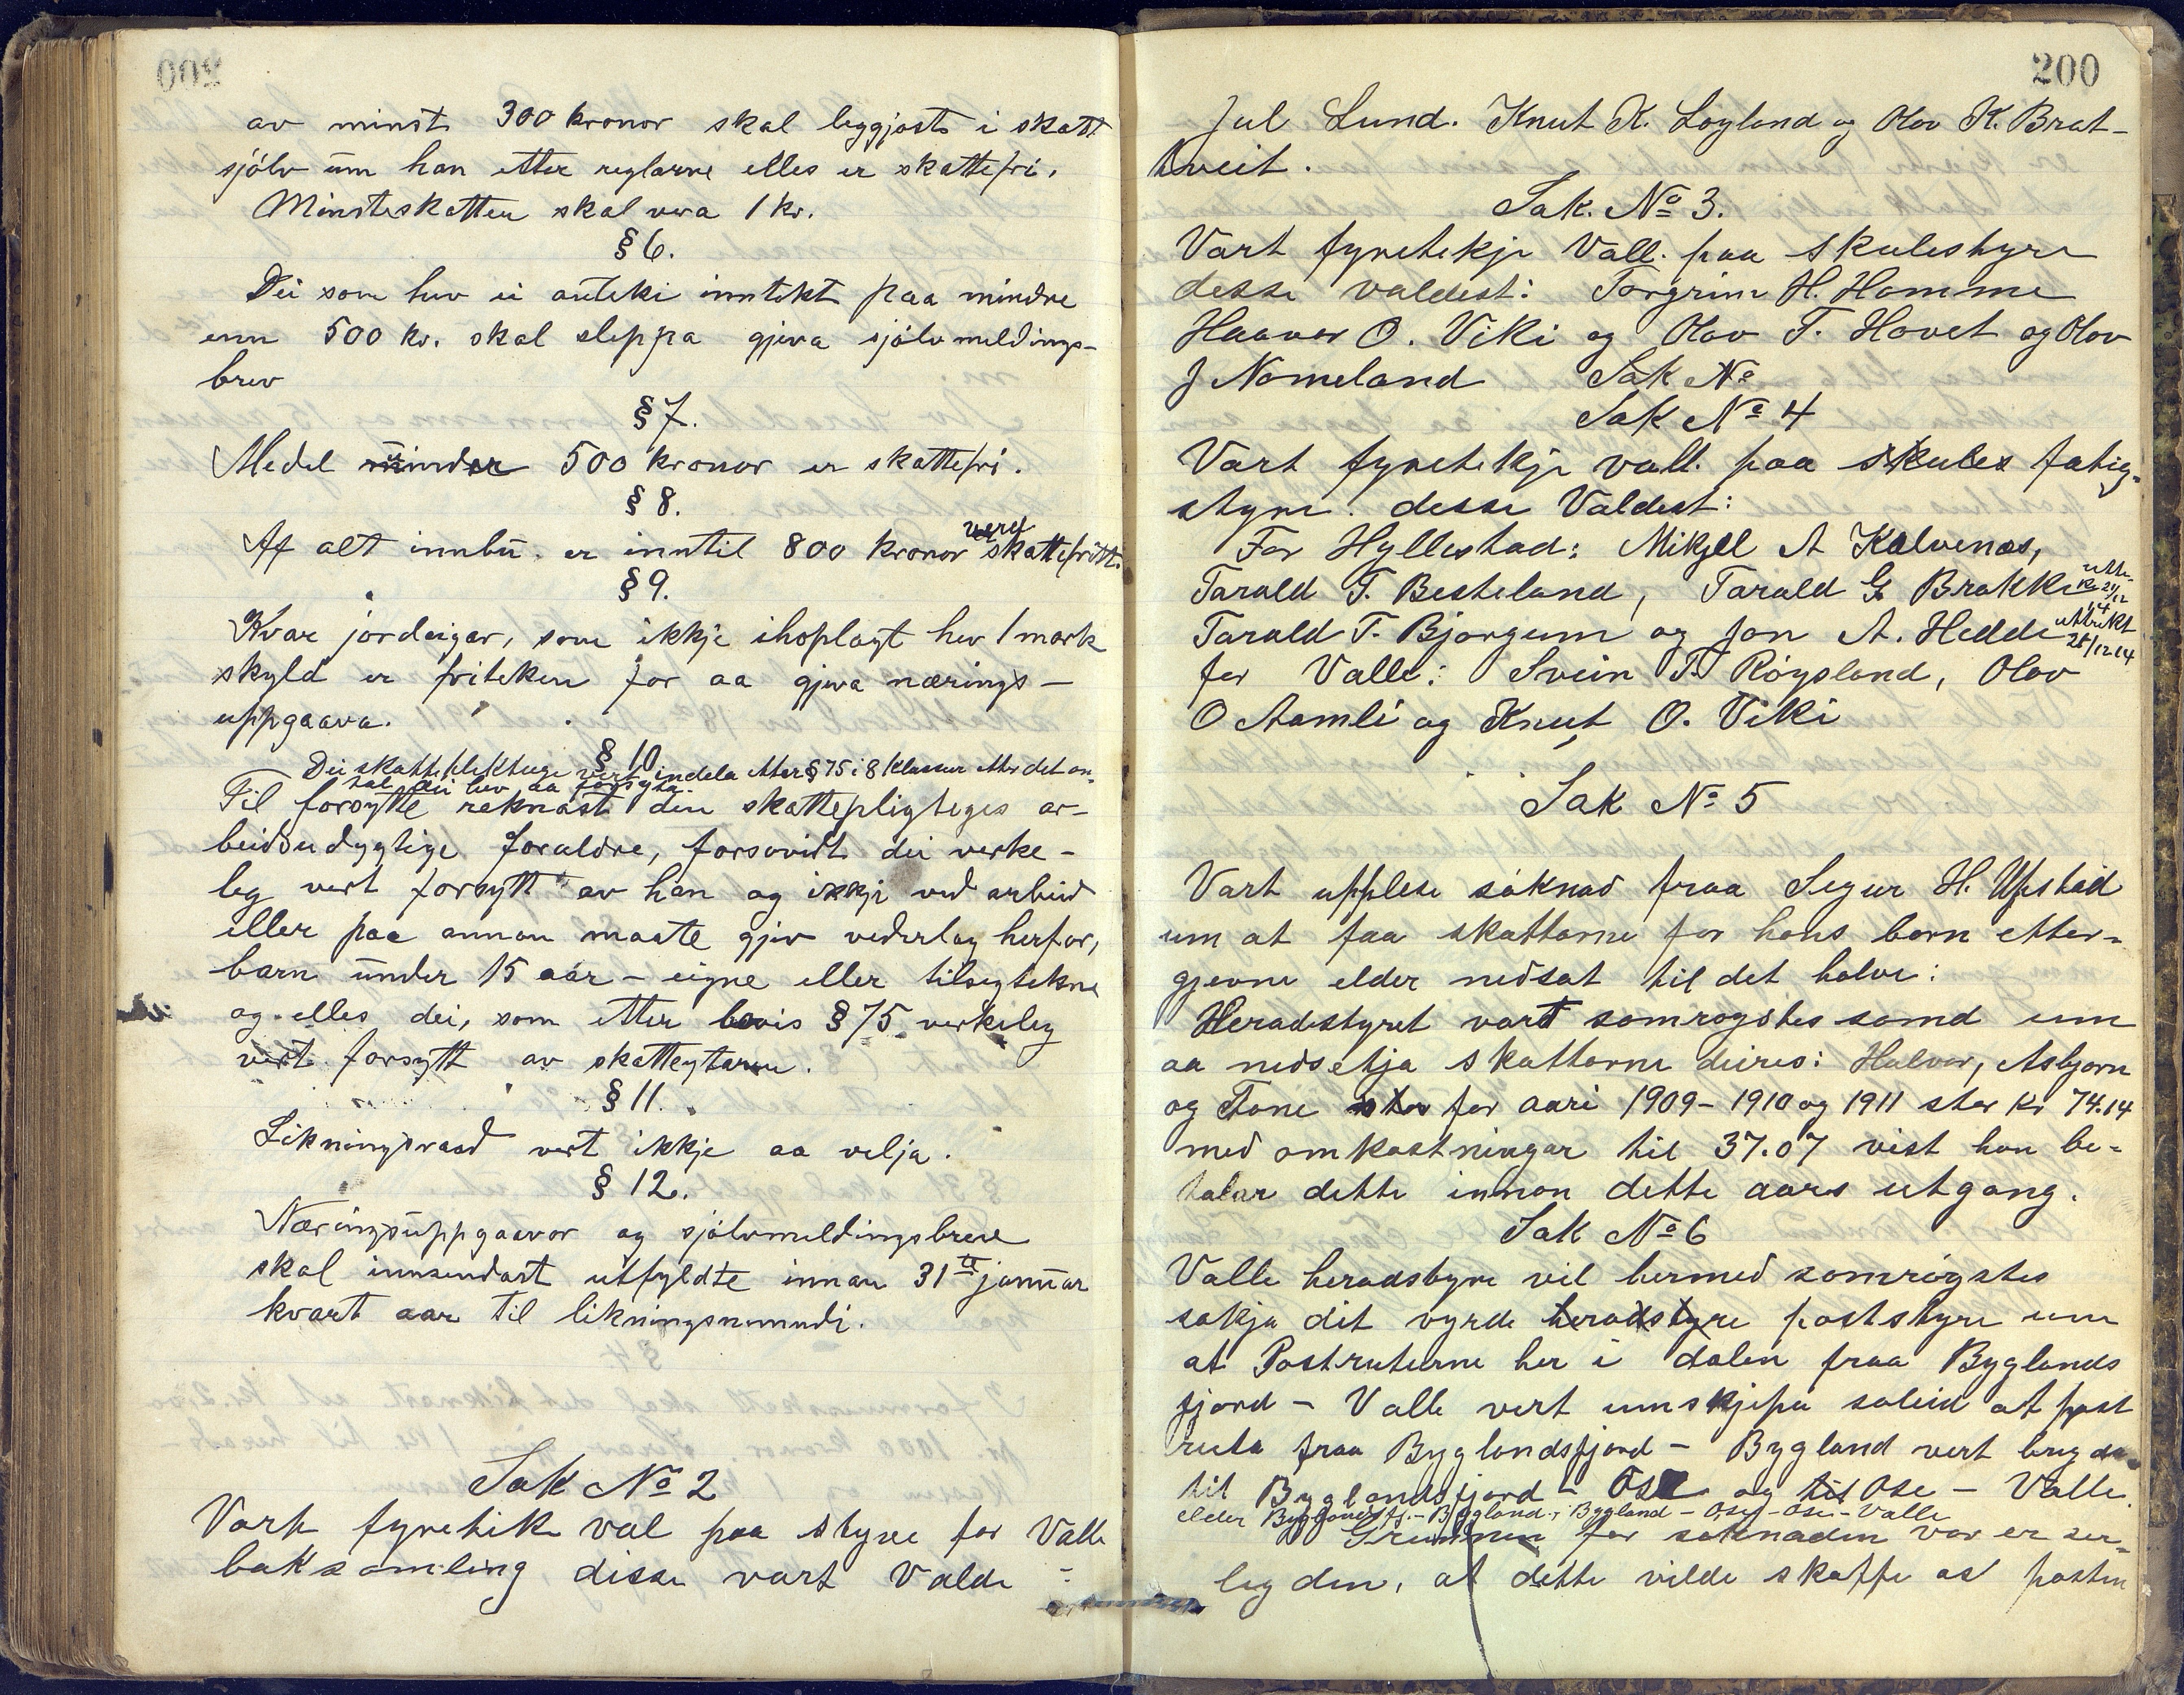 av minst 300 kronor skal leggjast i skatt
sjølv um han etter reglarne elles er skattefri.
Minsteskatten skal vera 1 kr.
§ 6.
Dei som hev ei anteki inntekt paa mindre
enn 500 kr. skal sleppa gjeva sjølvmeldings-
brev
§ 7.
Medel minder 500 kronor er skattefri.
§ 8.
Af alt innbu er inntil 800 kronor verd skattefritt.
§ 9.
Kvar jordeigar, som ikkje ihoplagt hev 1 mark
skyld er friteken for aa gjeva nærings-
uppgaava.
§ 10
Dei skattepliktuge vert indela etter § 75 i 8 klassur etter det an-
tal dei hev aa forsyta.
Til forsytte reknast den skattepligteges ar-
beidsudygtige foraldre, forsovidt dei verke-
leg vert forsytt av han og ikkje ved arbeid
eller paa annan maate gjev vederlag herfor,
barn under 15 aar – eigne eller tilsegtekne
og elles dei, som etter bevis § 75 verkeleg
vert forsytt av skatteytaren.
§ 11.
Likningsraad vert ikkje aa velja.
§ 12.
Næringsuppgaavor og sjølvmeldingsbreve
skal innsendast utfyldte innan 31te januar
kvart aar til likningsnemndi.
Sak No 2
Vart fyretikk val paa styre for Valle
boksamling disse vart Valde :
200
Jul Lund. Knut K. Løyland og Olov K. Brat-
tveit.
Sak. No 3.
Vart fyretekje Vall. paa skulestyre
desse valdest: Torgrim H. Homme
Haavor O. Viki og Olov T. Hovet og Olov
J Nomeland Sak No
Sak No 4
Vart fyretekje vall. paa skules fatig-
styre. desse Valdest:
For Hyllestad: Mikjell A Kalvenæs,
Tarald T. Besteland, Tarald G. Brokke
Tarald T. Bjørgum og Jon A. Hedde uttrekt 28/12 14
for Valle: Svein T. Røysland, Olov
O Aamli og Knut O. Viki
Sak No 5
Vart upplese søknad fraa Segur H. Upstad
um at faa skattarne for hans born etter-
gjevne elder nedsat til det halve:
Heradstyret vart samrøystes samd um
aa nedsetja skattarne deires: Halvor, Asbjørn
og Tone for aari 1909 – 1910 og 1911 stor kr 74.14
med omkostningar til 37.07 vist han be-
talar dette innan dette aars utgang.
Sak No 6
Valle heradstyre vil hermed samrøystes
søkja dit vyrde heradstyre poststyre um
at Postruterne her i dalen fraa Byglands
fjord – Valle vert umskjipa soleid at post
ruta fraa Byglandsfjord – Bygland vert brygda
til Byglandsfjord – Ose og til Ose – Valle.
elder Byglandsfj. – Bygland, Bygland – Ose, Ose – Valle
Grunnen for søknaden vor er ser-
leg den, at dette vilde skaffe os posten